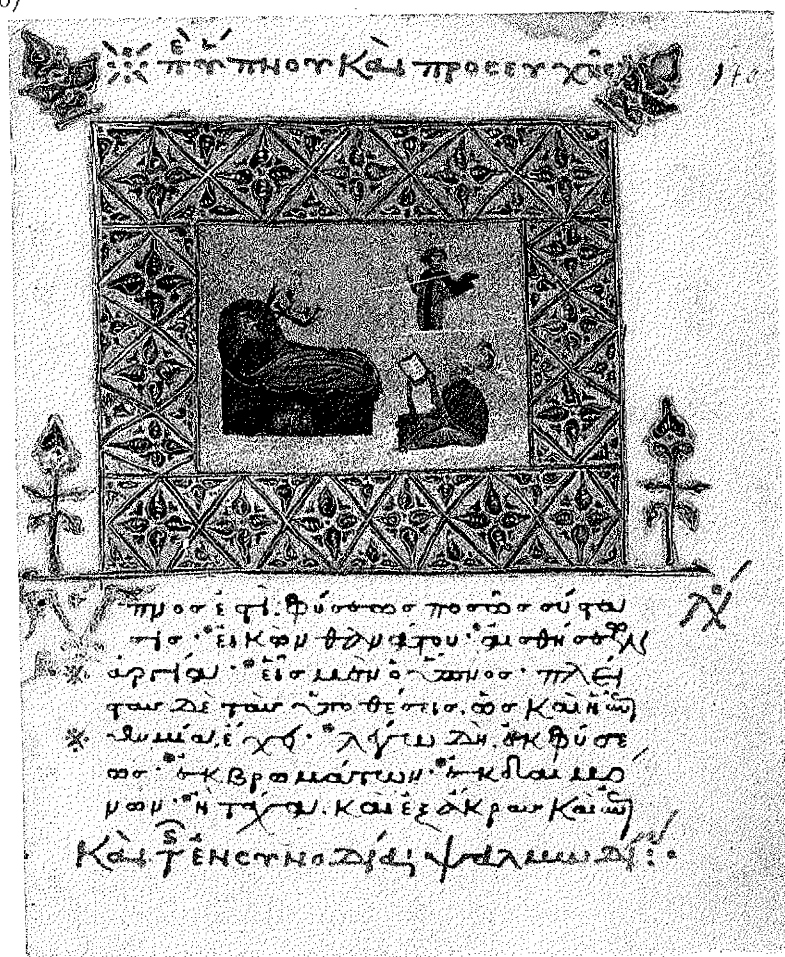 π ὕπνου Καὶ προσευχῆς
πνος ἐστὶ. φύσεως ποσῶς σύστα
σις· εἰκὼν θανάτου· αἰσθήσεων
ἀργία· εἷς μὲν ὁ ὕπνος· πλεί
στας δὲ τὰς ὑποθέσεις. ὡς καὶ ἡ ἐπι
θυμία, ἔχει· λέγω δὴ, ἐκ φύσε
ως· ἐκ βρωμάτων· ἐκ δαιμό
νων· ἢ τάχα. καὶ ἐξ ἄκρας καὶ ἐπι
Καὶ τῆς ἐν συνοδία ψαλμωδί:·